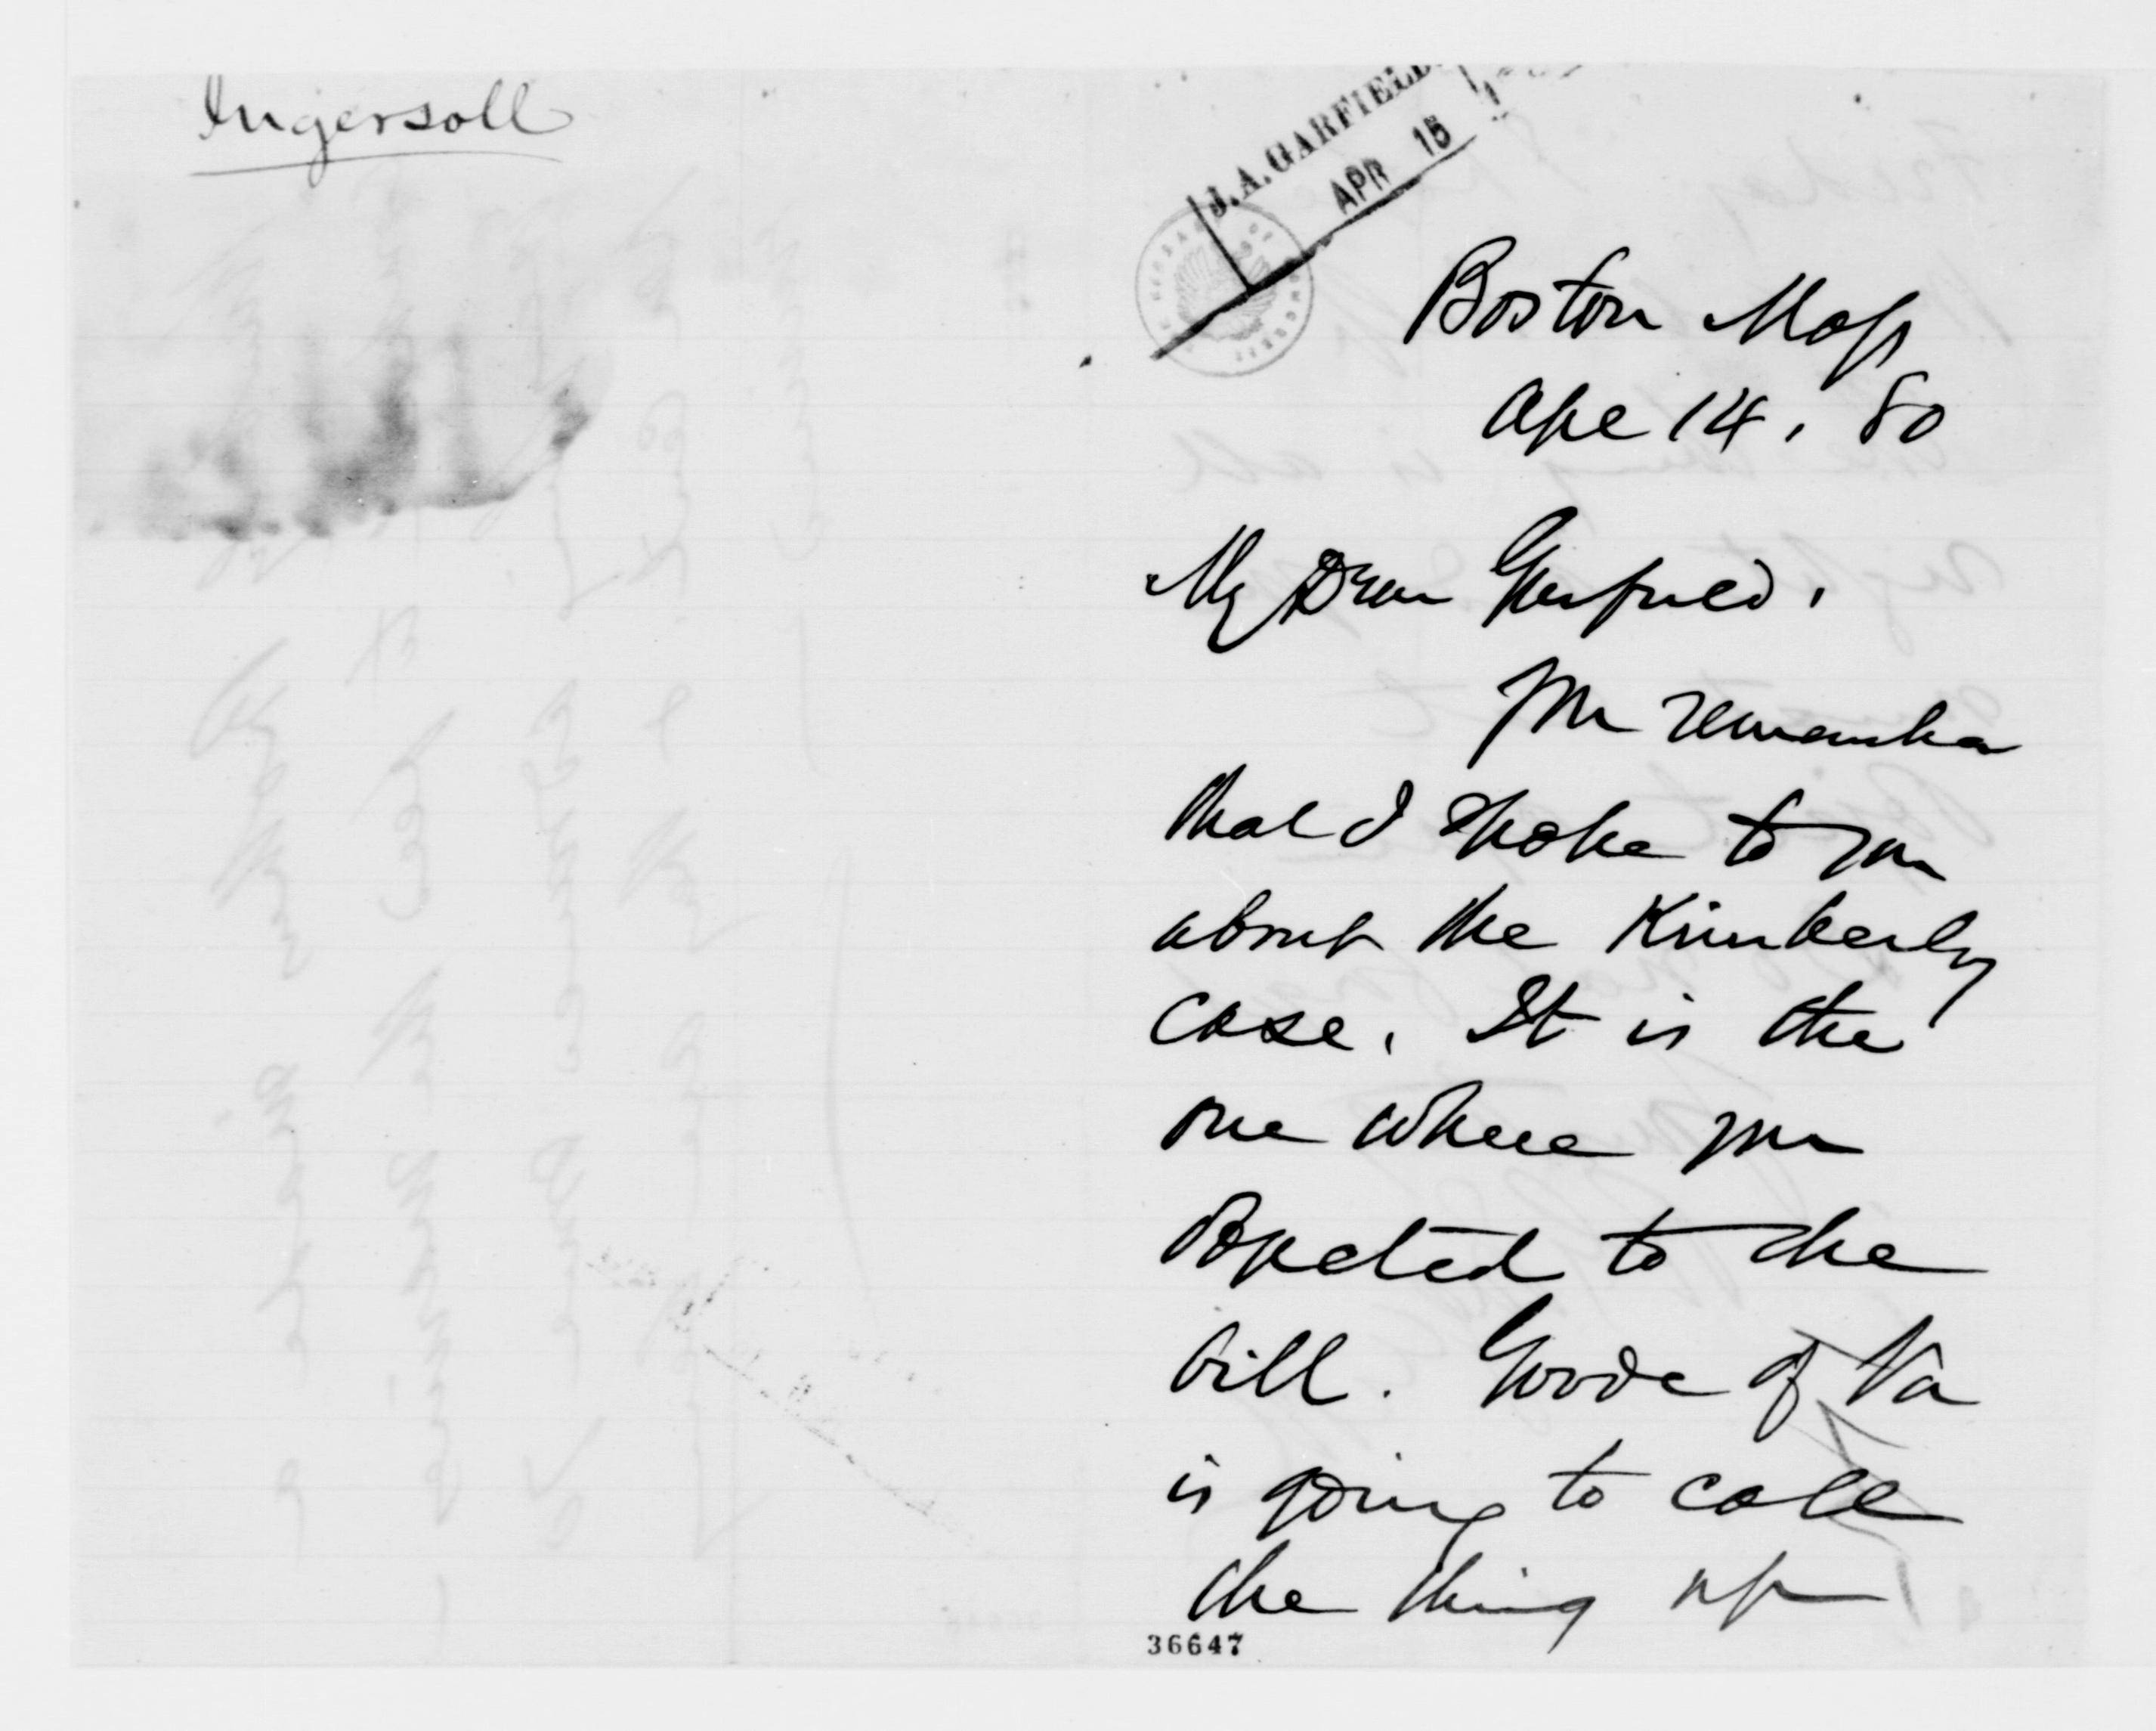 Ingersoll
J. A. GARFIELD
APR 15
Boston Mass
Apl 14, 80
My Dear Garfield,
You remember
that I spoke to you
about the Kimberly
case. It is the
one where you
objected to the
bill. Goode of Va
is going to call
the thing up
36647